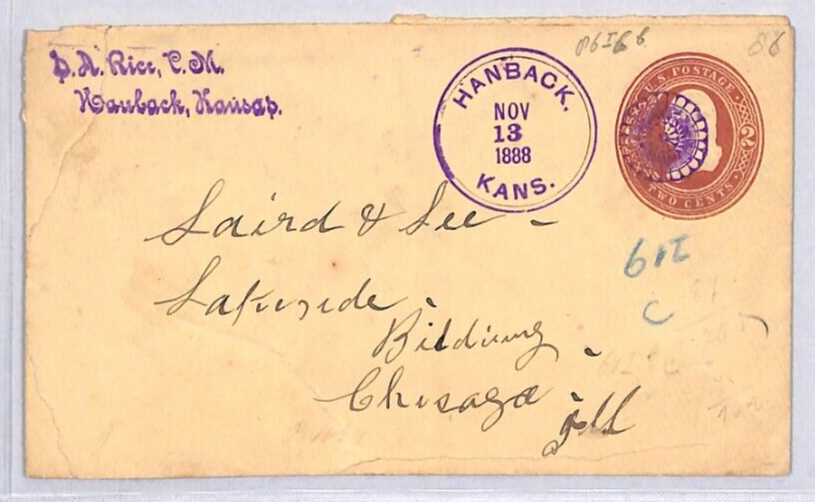 D. A. Rice, P. M.
Hanback, Kansas.
HANBACK.
NOV
13
1888
KANS.
U.S. POSTAGE
2
TWO CENTS
Laird & Lee -
Lakeside
Bilding
Chicago
Ill
86
C